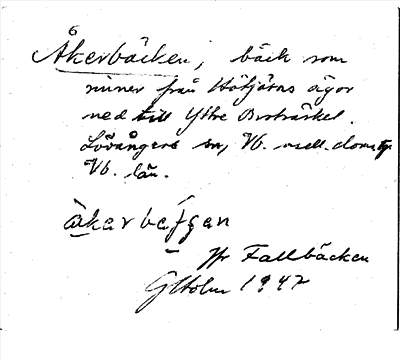 Åkerbäcken, bäck som
rinner från Hötjärns ägor
ned till Yttre Bursträsket.
Lövångers sn, Vb. nsell. doms
Vb. län.
åkarbäʃʃan
Jfr Fallbäcken
GHolm 1947